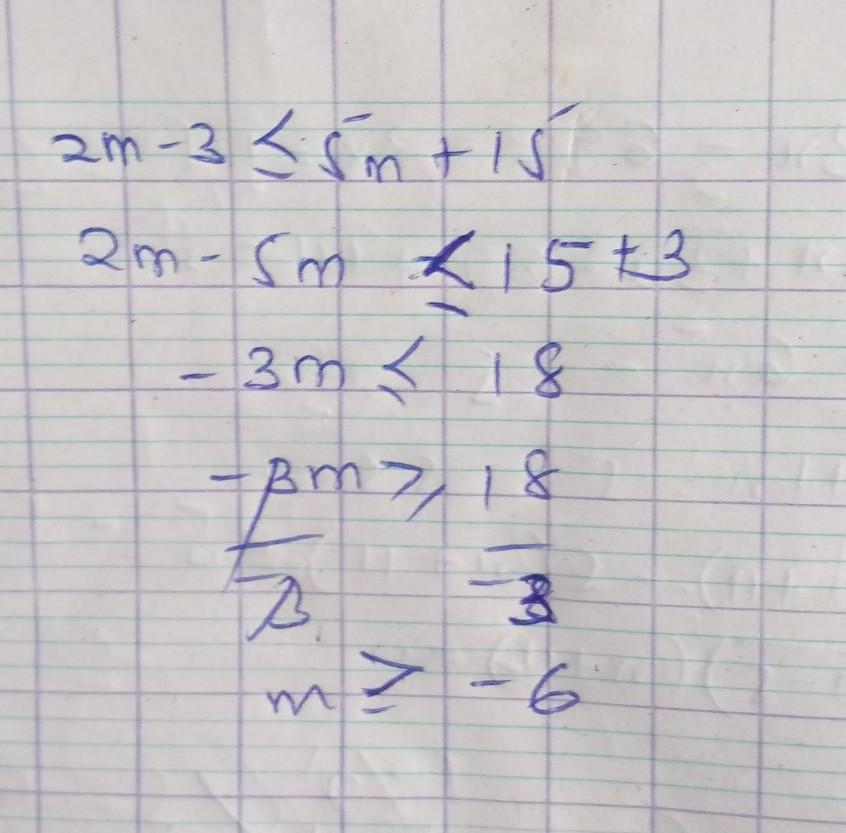 2m - 3 ≤ 5m + 15
2m - 5m ≤ 15 + 3
- 3m ≤ 18
- 3m ≥ 18
-3 -3
m ≥ - 6